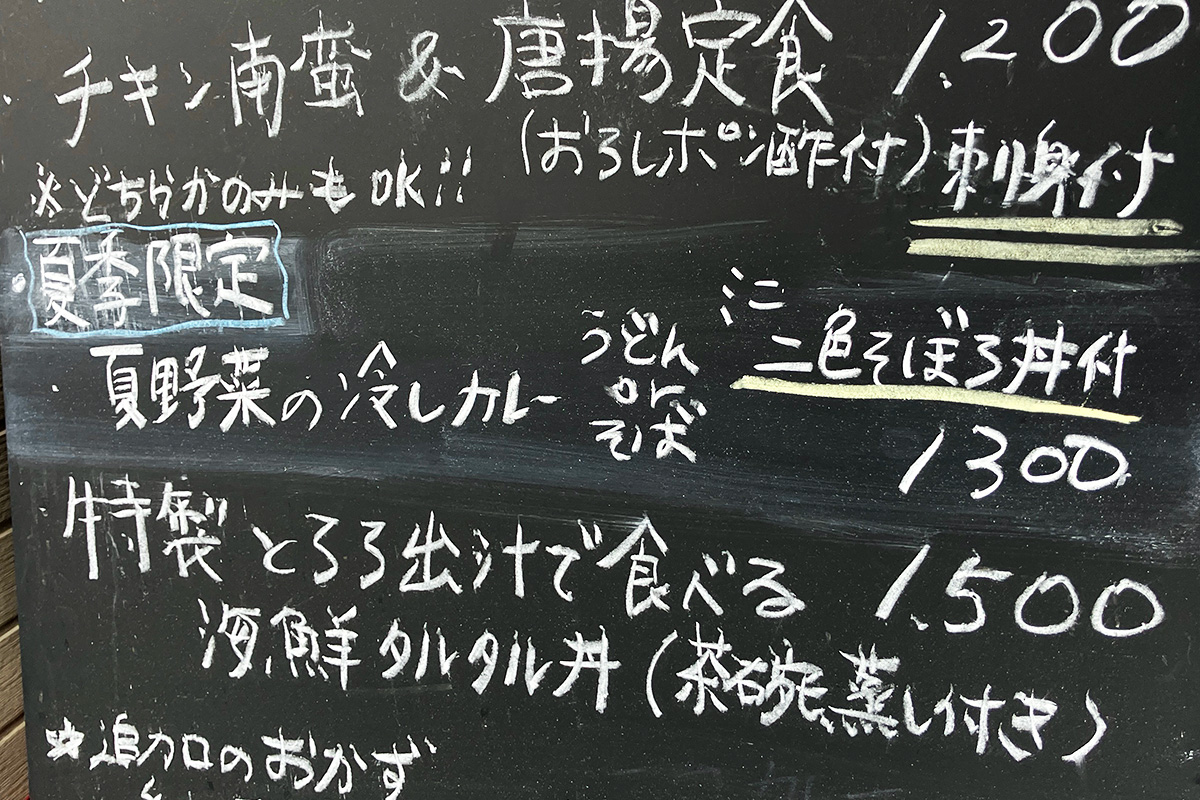 ・チキン南蛮 & 唐揚定食 1.200
(おろしポン酢付) 刺身付
※どちらかのみも OK!!
夏季限定
・夏野菜の冷しカレー うどん or そば
ミニ
二色そぼろ丼付
1300
特製 とろろ出汁で食べる 1.500
海鮮タルタル丼 (茶碗蒸し付き)
☆追加のおかず